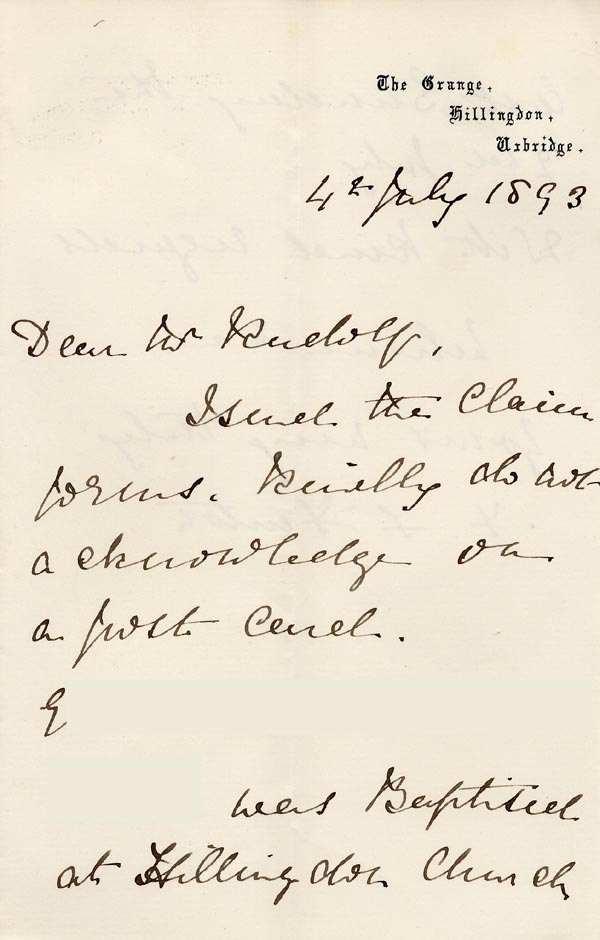 The Grange,
Hillingdon,
Uxbridge.
4th July 1893
Dear Mr Rudolf,
I send the Claim
forms. Kindly do not
acknowledge on
a post card.
G
was Baptised
at Hillingdon Church